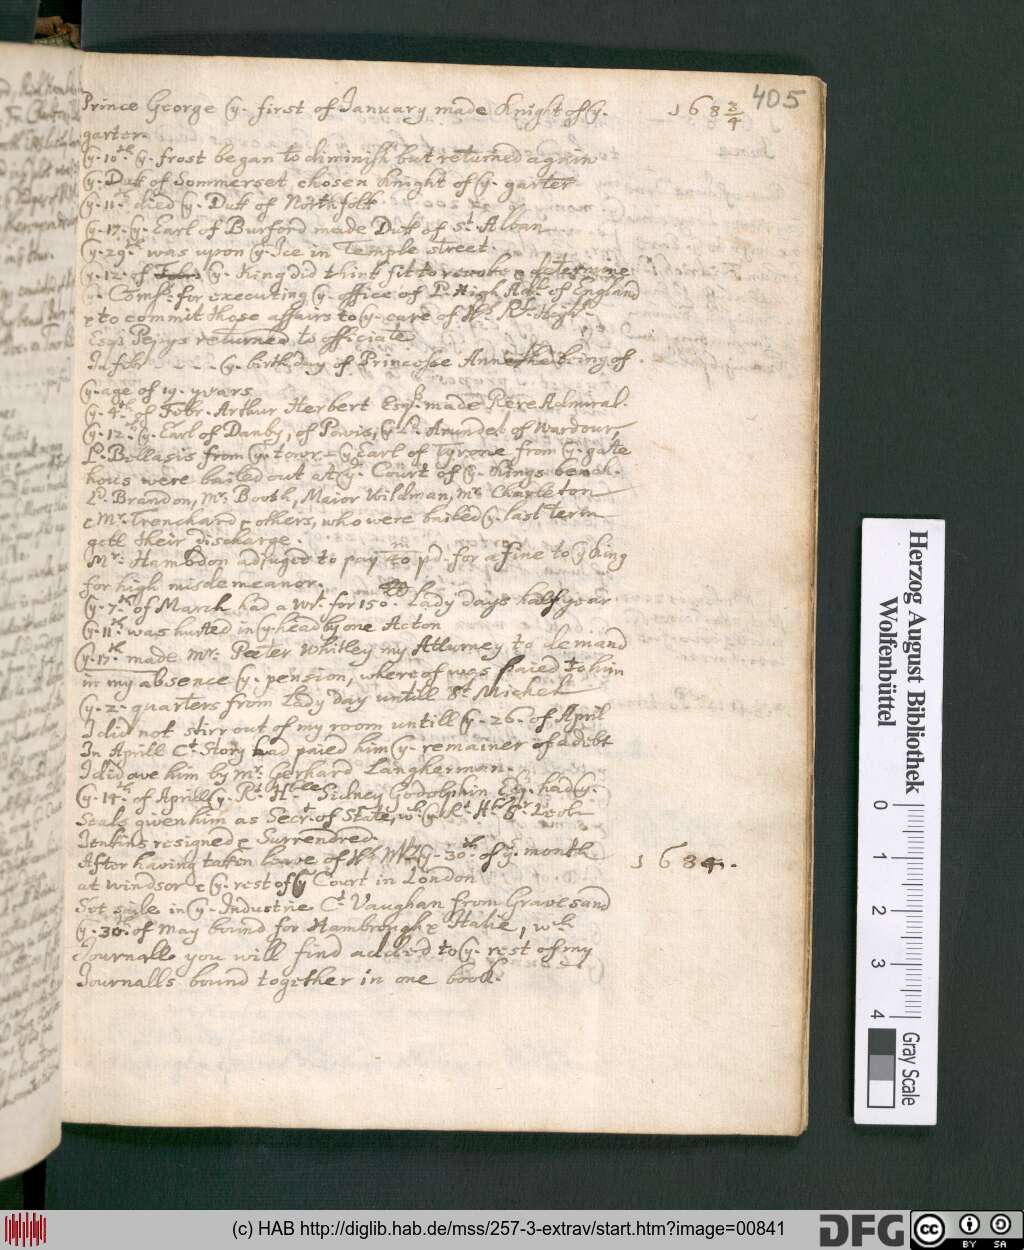 405
Prince George ye. first of January made Knight of ye. 168 3/4
garter.
ye. 10th. ye. frost began to diminish but returned again
ye. Duk of Sommerset chosen Knight of ye. garter
ye. 11. died ye. Duk of Northfolk.
ye. 17. ye. Earl of Burford made Duk of St. Alban
ye. 29th was upon ye. Ice in Temple street.
ye. 12. of ye. King did think fit to revoke & determine
ye. Coms: for executing ye. office of L. High Adl. of England
& to commit those affairs to ye. care of
Esqr Pepys returned to officiate
In febr - - - - ye. birth day of Princesse Anne she being of
ye. age of 19. years
ye. 4th. of Febr. Arthur Herbert Esqr. made Rere Admiral.
ye. 12th. ye. Earl of Danby, of Powis, ye Ld. Arundel of Wardour,
Ld. Bellasis from ye. towr - ye Earl of Tyrone from ye. gate
hous were bailed out at ye. Court of ye. Kings bench.
Ld. Brandon, Mr. Booth, Maior Wildman, Mr Charleton
& Mr. Trenchard & others, who were bailed ye. last term
gett their discharge.
Mr: Hambdon adjuged to pay 40m pd. for a fine to ye King
for high misdemeanor.
ye. 7th. of March had a Wt. for 150. Lady days half year
ye. 11th. was hurted in ye head by one Acton
ye. 17th. made Mr. Peeter Whitley my Atturney to demand
in my absence ye. pension, whereof was paied to him
ye. 2. quarters from Lady day untill St Michel
I did not stirr out of my room untill ye. 26. of April
In Aprill Ct. Story had paied him ye. remainer of a debt
I did owe him by Mr. Gerhard Langherman.
ye. 14th. of Aprill ye. Rt. Hble Sidney Godolphin Esqr. had ye.
Seals gwen him as Secrt. of State, wch ye Rt Hble Sr Leol:
Jenkins resigned & Surrendred.
After having taken leave of ye. 30th. of ye. month 1684.
at windsor & ye. rest of ye Court in London
Set sayle in ye. Industrie Ct. Vaughan from Gravesand
ye. 30th. of May bound for Hambrough & Italie, wch
Journall you will find added to ye. rest of my
Journalls bound together in one book.
Herzog August Bibliothek
Wolfenbüttel
0 1 2 3 4
Gray Scale
(c) HAB http://diglib.hab.de/mss/257-3-extrav/start.htm?image=00841
DFG
cc BY SA